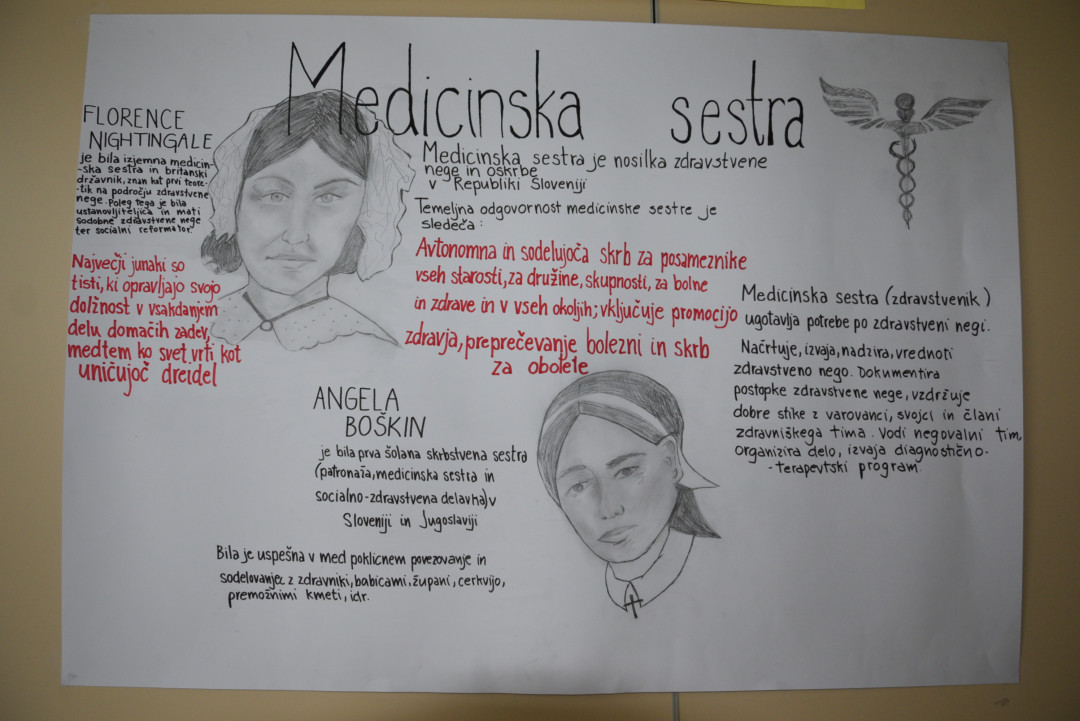 Medicinska sestra
FLORENCE
NIGHTINGALE
je bila izjemna medicin-
-ska sestra in britanski
državnik, znan kot prvi teore-
-tik na področju zdravstvene
nege. Poleg tega je bila
ustanovljiteljica in mati
sodobne zdravstvene nege
ter socialni reformator.
Največji junaki so
tisti, ki opravljajo svojo
dolžnost v vsakdanjem
delu domačih zadev,
medtem ko svet vrti kot
uničujoč dreidel
Medicinska sestra je nosilka zdravstvene
nege in oskrbe
v Republiki Sloveniji
Temeljna odgovornost medicinske sestre je
sledeča:
Avtonomna in sodelujoča skrb za posameznike
vseh starosti, za družine, skupnosti, za bolne
in zdrave in v vseh okoljih; vključuje promocijo
zdravja, preprečevanje bolezni in skrb
za obolele
Medicinska sestra (zdravstvenik)
ugotavlja potrebe po zdravstveni negi.
Načrtuje, izvaja, nadzira, vrednoti
zdravstveno nego. Dokumentira
postopke zdravstvene nege, vzdržuje
dobre stike z varovanci, svojci in člani
zdravniškega tima. Vodi negovalni tim,
organizira delo, izvaja diagnostično-
-terapevtski program.
ANGELA
BOŠKIN
je bila prva šolana skrbstvena sestra
(patronaža, medicinska sestra in
socialno-zdravstvena delavka) v
Sloveniji in Jugoslaviji
Bila je uspešna v med poklicnem povezovanje in
sodelovanjec z zdravniki, babicami, župani, cerkvijo,
premožnimi kmeti, idr.